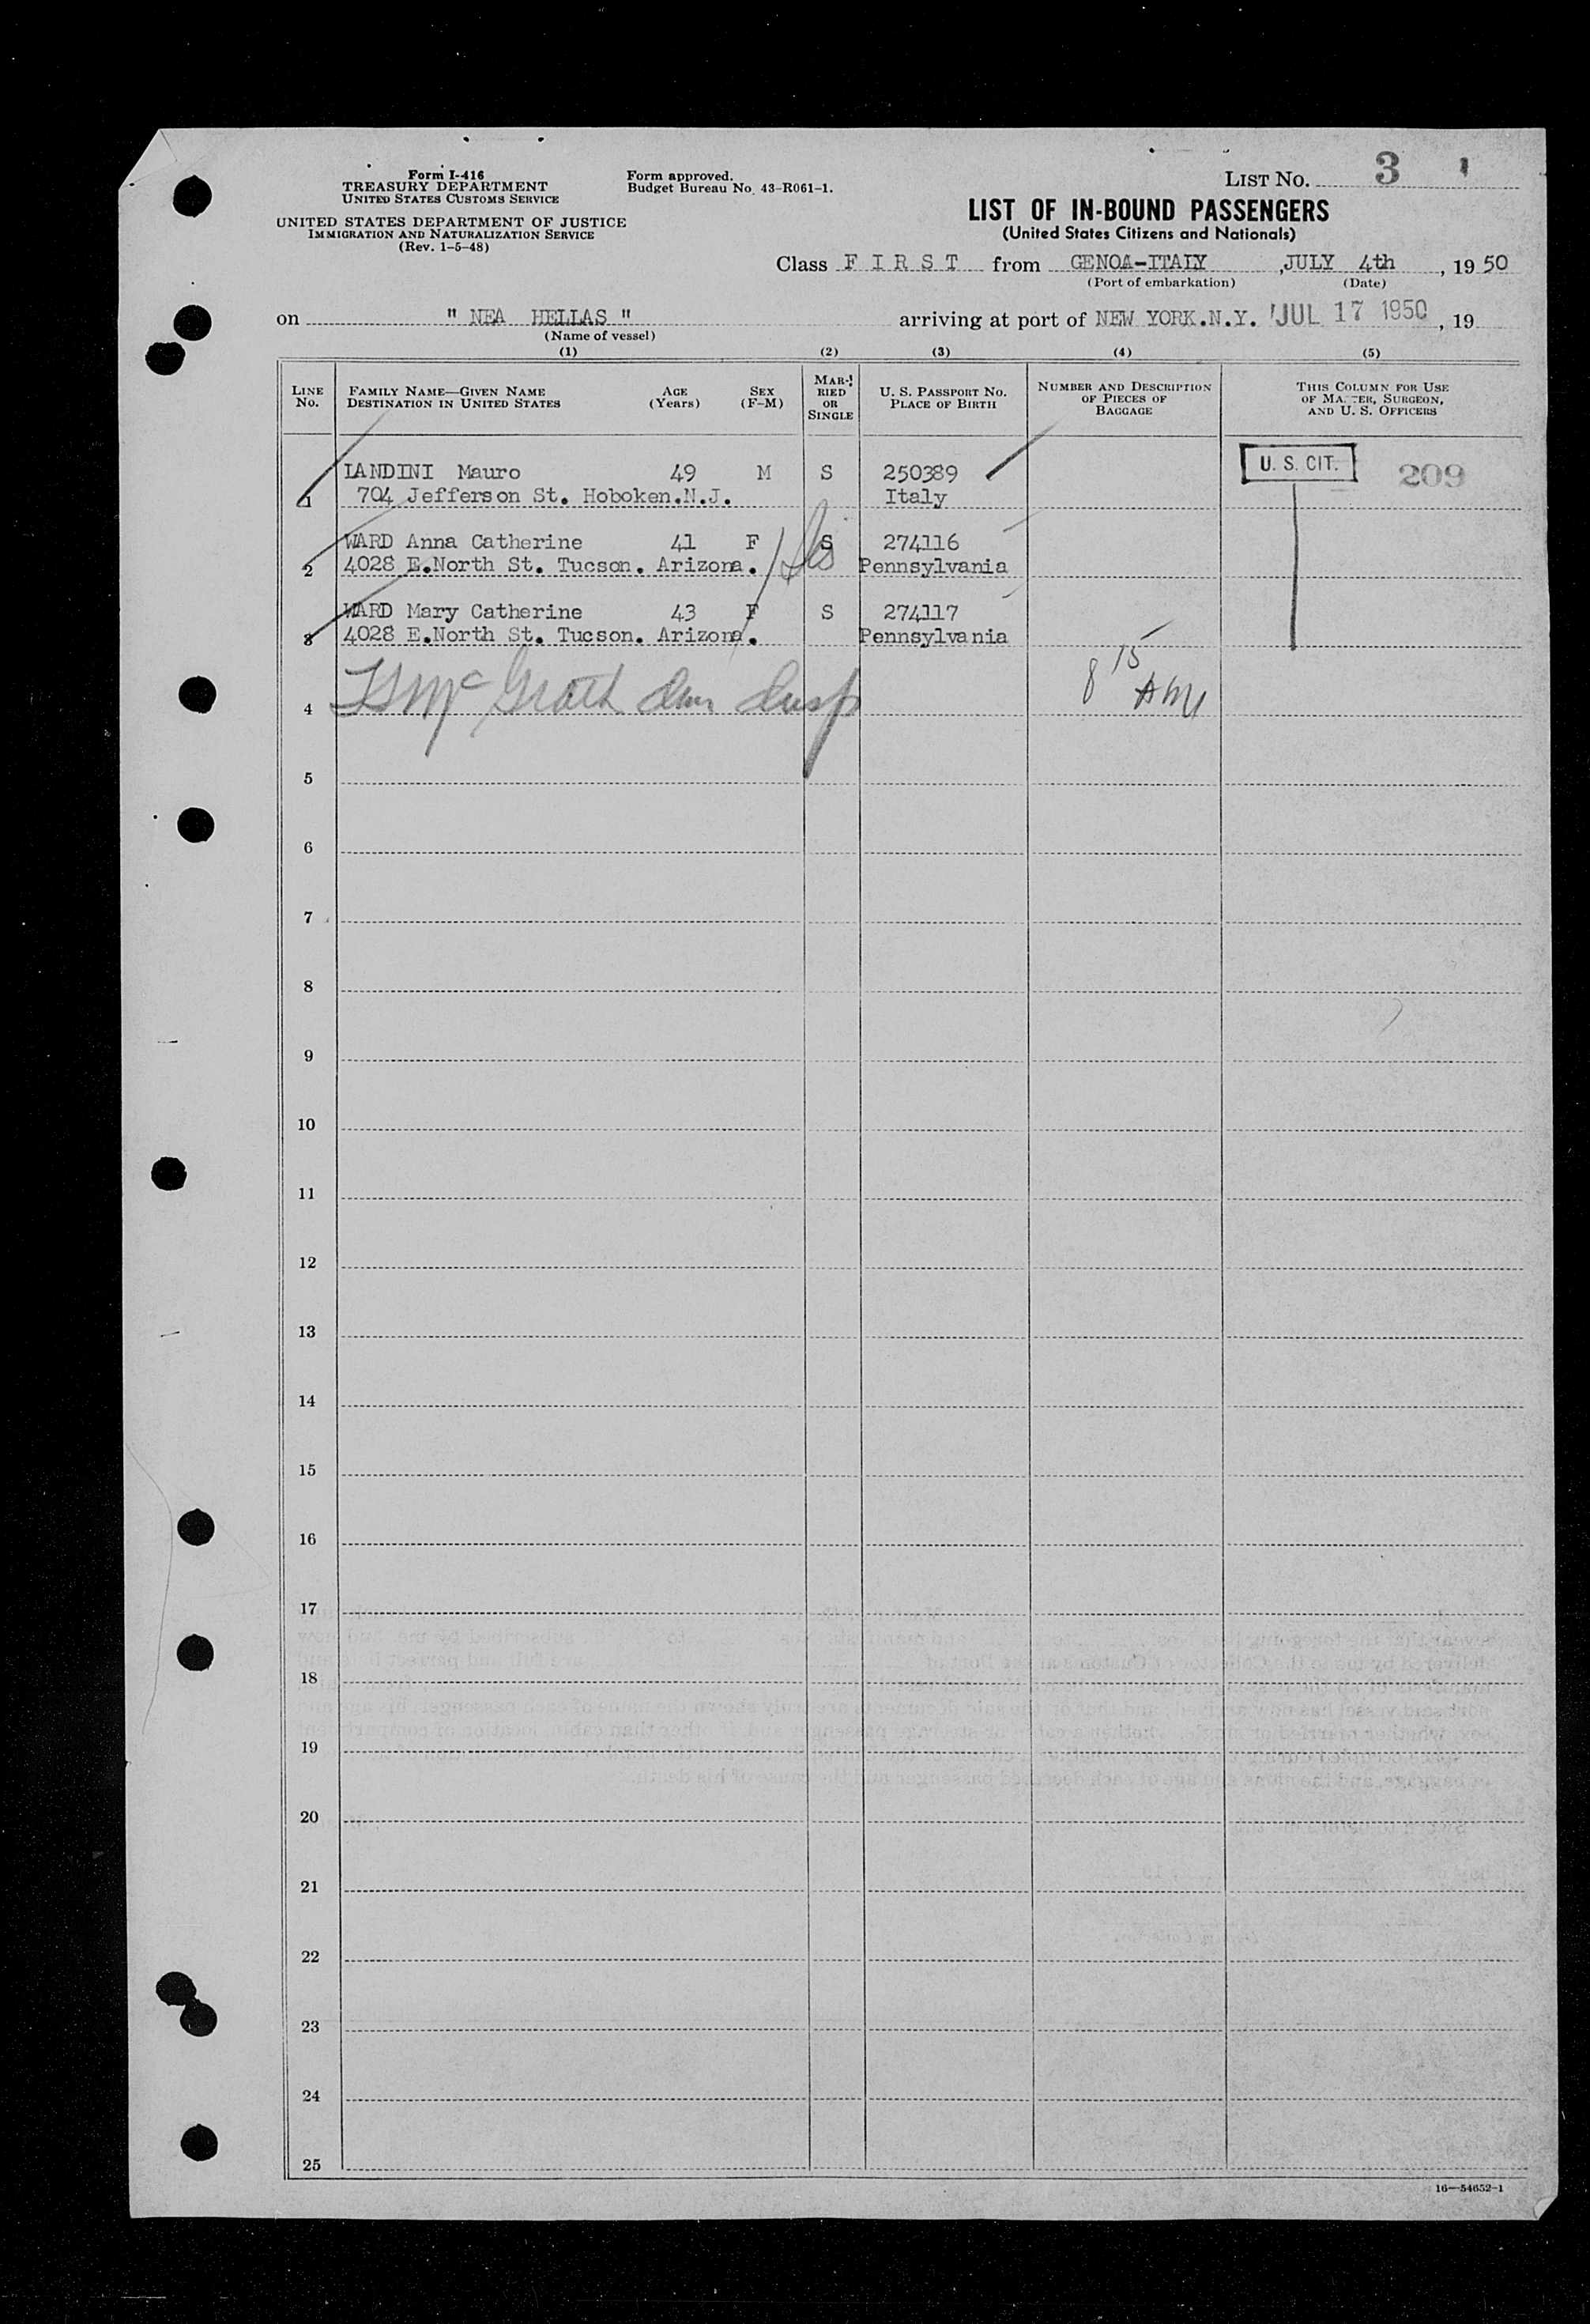 Form I-416
TREASURY DEPARTMENT
UNITED STATES CUSTOMS SERVICE
UNITED STATES DEPARTMENT OF JUSTICE
IMMIGRATION AND NATURALIZATION SERVICE
(Rev. 1-5-48)
Form approved.
Budget Bureau No. 43-R061-1.
LIST NO. 3
LIST OF IN-BOUND PASSENGERS
(United States Citizens and Nationals)
Class F I R S T from GENOA-ITALY ,JULY 4th , 19 50
(Port of embarkation) (Date)
on " NEA HELLAS " arriving at port of NEW YORK.N.Y. JUL 17 1950 , 19
(Name of vessel)
(1) (2) (3) (4) (5)
LINE NO.
FAMILY NAME—GIVEN NAME AGE SEX
DESTINATION IN UNITED STATES (Years) (F-M)
MARRIED OR SINGLE
U. S. PASSPORT NO.
PLACE OF BIRTH
NUMBER AND DESCRIPTION
OF PIECES OF
BAGGAGE
THIS COLUMN FOR USE
OF MASTER, SURGEON,
AND U. S. OFFICERS
LANDINI Mauro 49 M S 250389 U. S. CIT. 209
1 704 Jefferson St. Hoboken.N.J. Italy
WARD Anna Catherine 41 F S 274116
2 4028 E.North St. Tucson. Arizona. Pennsylvania
WARD Mary Catherine 43 F S 274117
3 4028 E.North St. Tucson. Arizona. Pennsylvania
4 McGrath Imm Insp 8 15 AM
5
6
7
8
9
10
11
12
13
14
15
16
17
18
19
20
21
22
23
24
25
16—54652-1